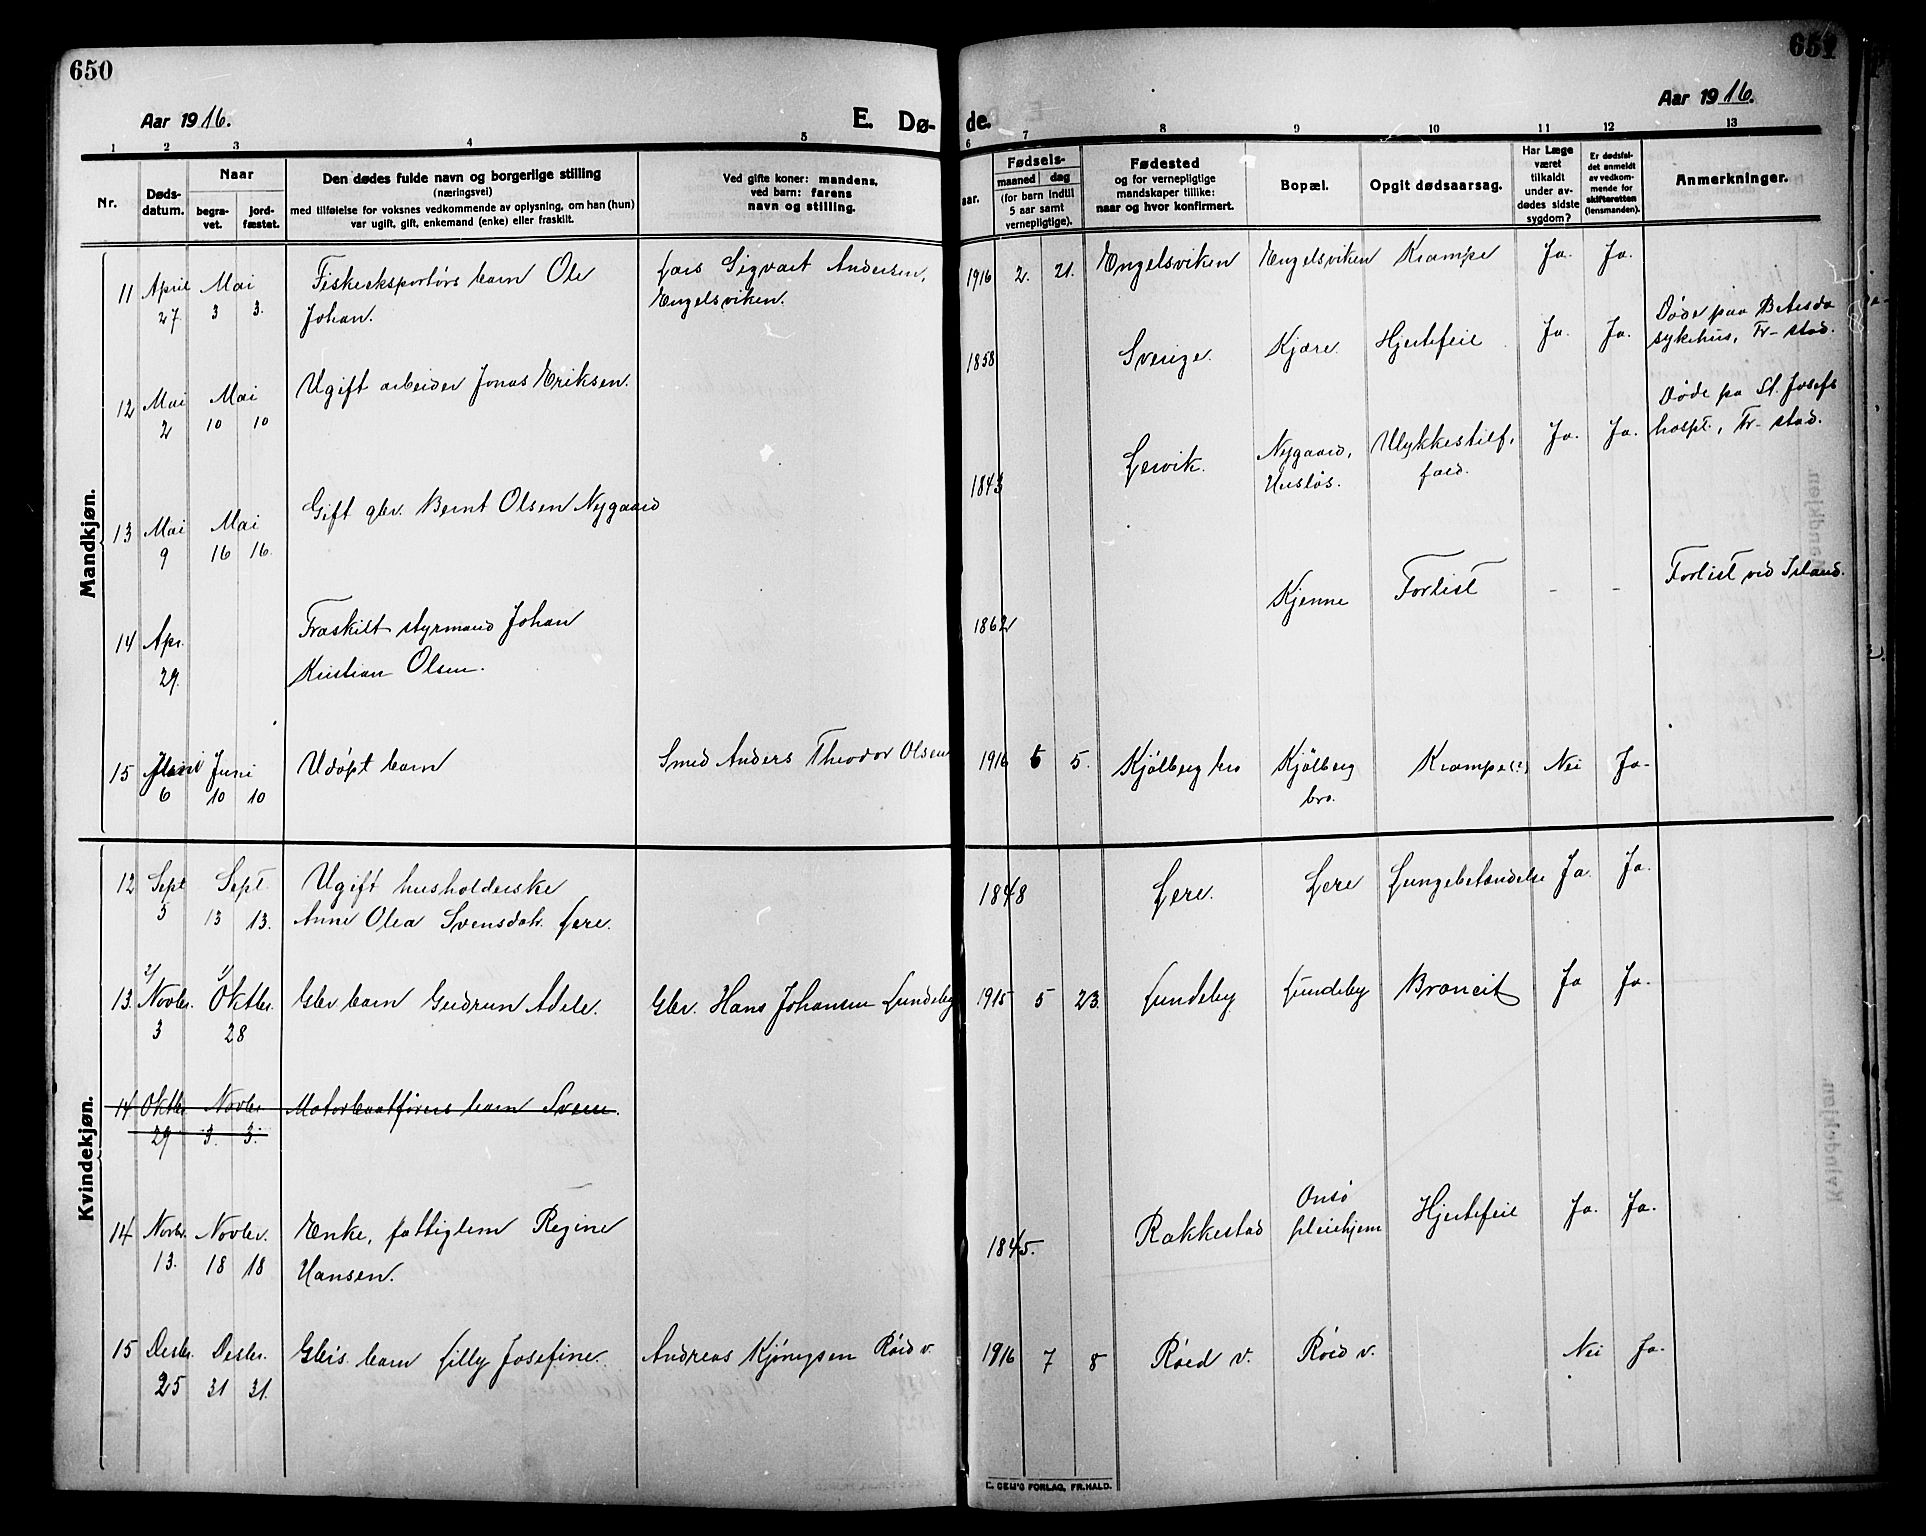 650
651
Aar 1916.
E. Dø-
de.
Aar 1916.
1 2 3 4 5 6 7 8 9 10 11 12 13
Nr.
Døds-
datum.
Naar
begra-
vet.
jord-
fæstet.
Den dødes fulde navn og borgerlige stilling
(næringsvei)
med tilføielse for voksnes vedkommende av oplysning, om han (hun)
var ugift, gift, enkemand (enke) eller fraskilt.
Ved gifte koner: mandens,
ved barn: farens
navn og stilling.
aar.
Fødsels-
maaned dag
(for barn indtil
5 aar samt
vernepligtige).
Fødested
og for vernepligtige
mandskaper tillike:
naar og hvor konfirmert.
Bopæl.
Opgit dødsaarsag.
Har Læge
været
tilkaldt
under av-
dødes sidste
sygdom?
Er dødsfal-
det anmeldt
av vedkom-
mende for
skifteretten
(lensmanden).
Anmerkninger.
Mandkjøn.
11 April Mai Fiskeeksportørs barn Ole Lars Sigvart Andersen, 1916 2. 21. Engelsviken Engelsviken Krampe Ja. Ja.
27 3 3. Johan. Engelsviken.
12 Mai Mai Ugift arbeider Jonas Eriksen. 1858 Sverige. Kjære. Hjertefeil Ja. Ja. Døde paa Betesda
2 10 10 sykehus, Fr-stad.
13 Mai Mai Gift gbr. Bernt Olsen Nygaard 1843 Lervik. Nygaard, Ulykkestilf. Ja. Ja. Døde pa St. Josefs
9 16 16. Husløs. fæld. hospt., Fr-stad.
14 Apr. Fraskilt styrmand Johan 1862 Kjenne Forlist - - Forlist ved Island.
29. Kristian Olsen.
15 Juni Juni Udøpt barn Smed Anders Theodor Olsen 1916 6 5. Kjölberg bro Kjölberg Krampe(?) Nei Ja-
6 10 10 bro.
Kvindekjøn.
12 Sept Sept. Ugift husholderske 1848 Lere. Lere Lungebetændelse Ja. Ja.
5 13 13. Anne Olea Svensdatr. Lere.
2/ 1/
13. Novbr. Oktbr. Gbr barn Gudrun Adele. Gbr. Hans Johansen Lundeby 1915 5 23. Lundeby Lundeby Broncit Ja Ja.
3 28
14 Oktbr. Novbr Motorbaatførers barn Svein.
29 3. 3.
14 Novbr. Novbr. Enke, fattiglem Regine 1845. Rakkestad Onsö Hjertefeil Ja. Ja.
13. 18 18 Hansen. pleiehjem
15 Desbr. Desbr. Gbrs. barn Lilly Josefine. Andreas Kjönigsen Röed v. 1916 7 8 Röed v. Röed v. Nei Ja.
25 31 31.
E. SEM'S FORLAG, FR.HALD.